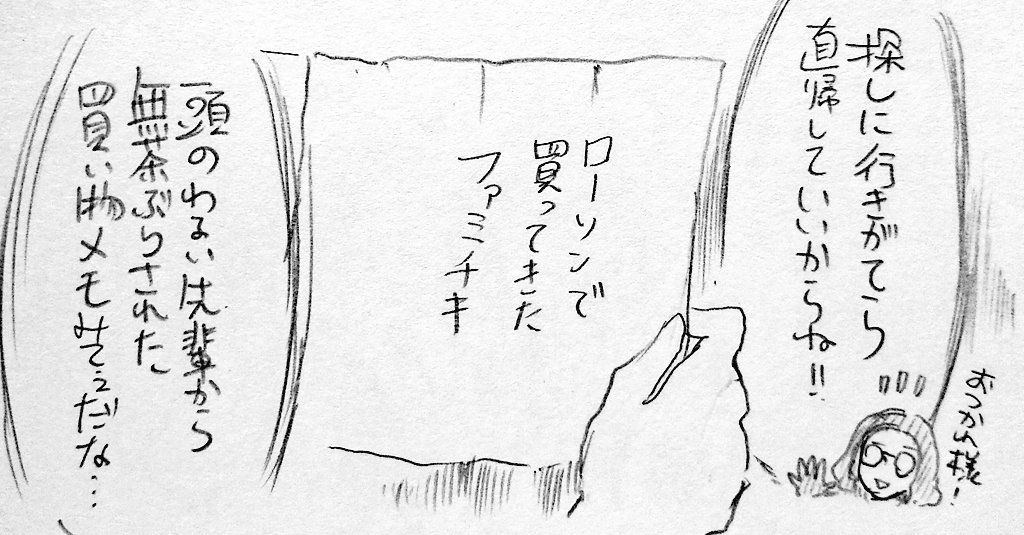 探しに行きがてら
直帰していいからね!!
おつかれ様!
ローソンで
買ってきた
ファミチキ
頭のわるい先輩から
無茶ぶりされた
買い物メモみてぇだな…